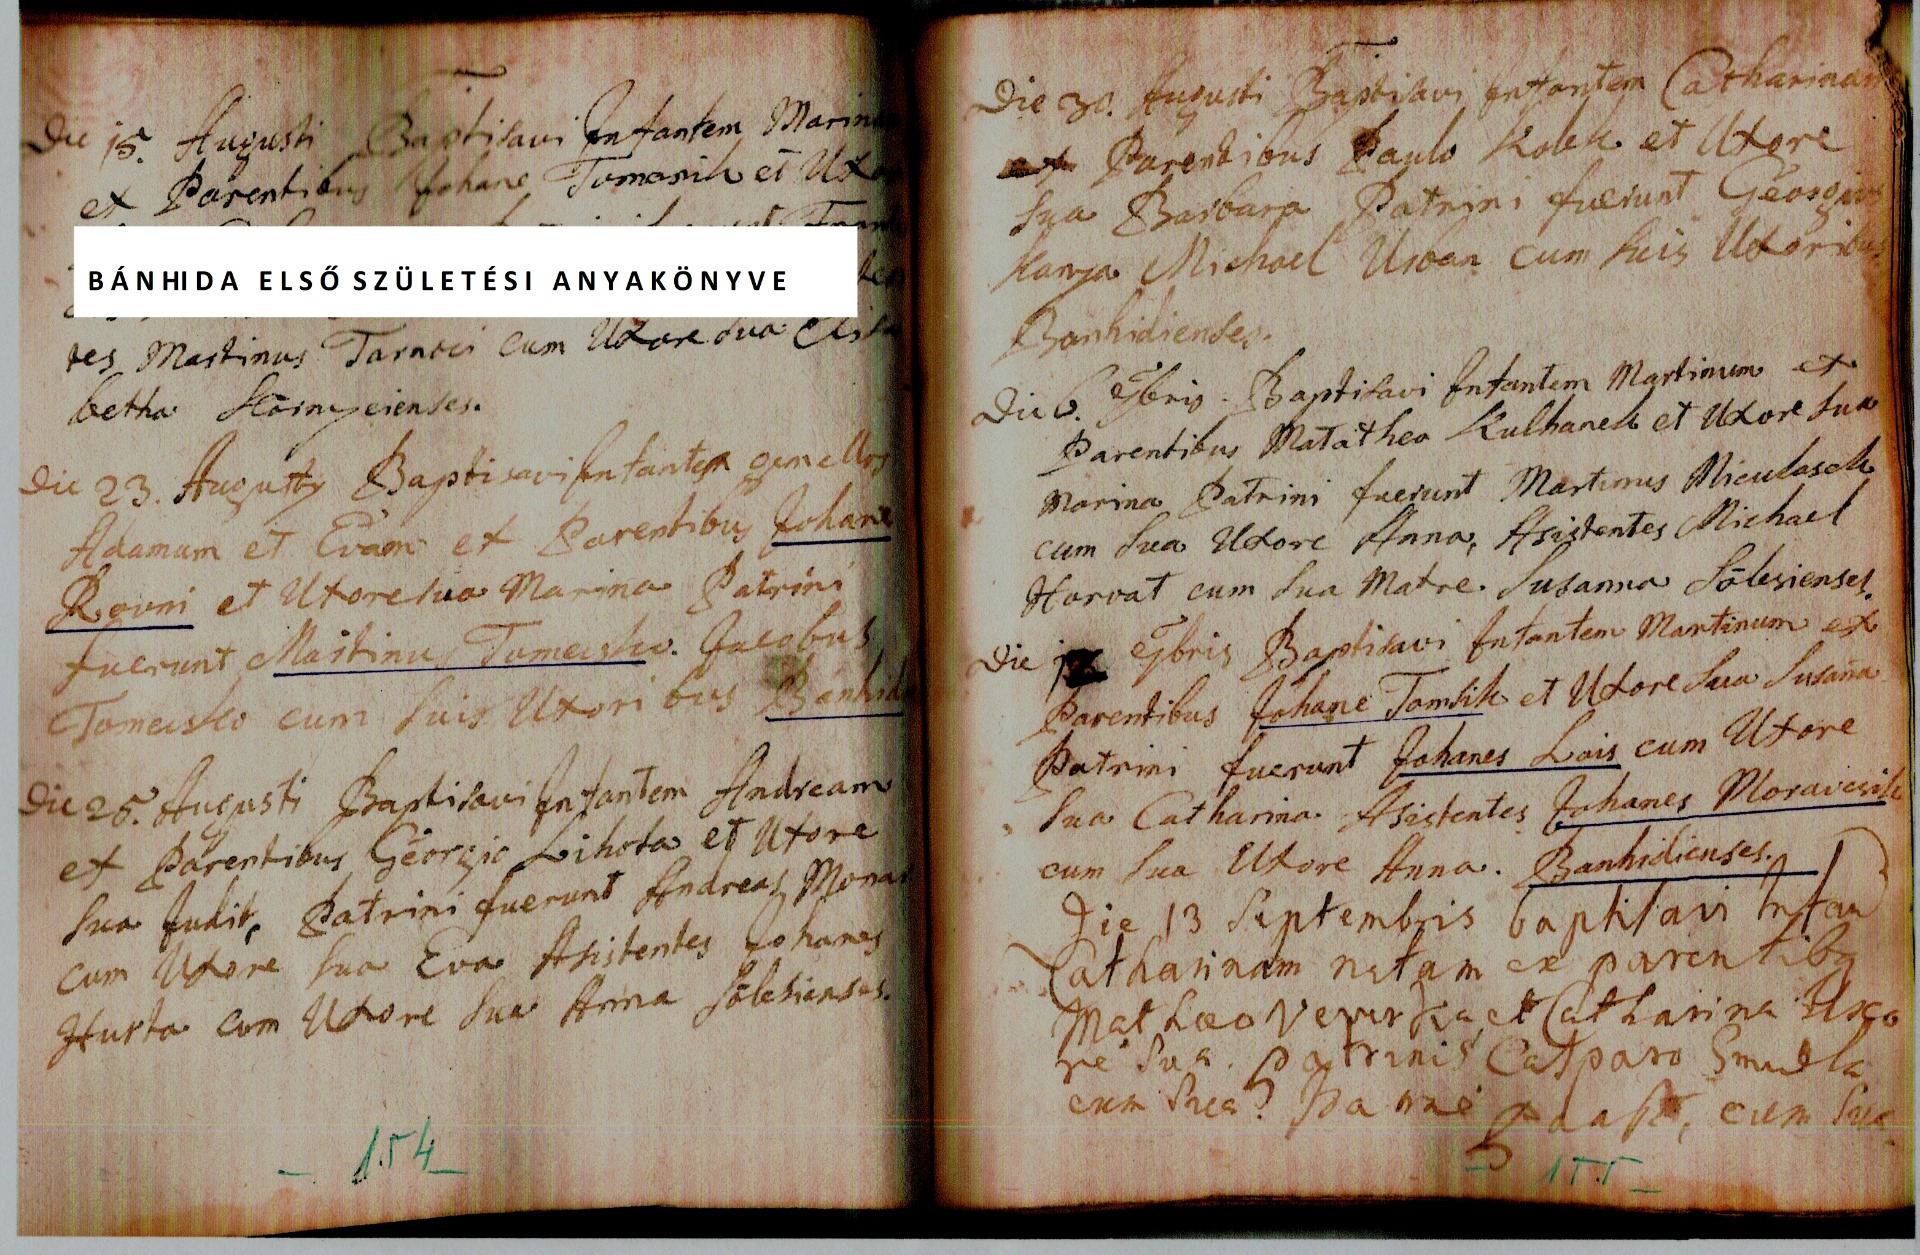 Die 15. Augusti Baptisavi Infantem Marin
ex Parentibus Johane Tomasik et Uxo
BÁNHIDA ELSŐ SZÜLETÉSI ANYAKÖNYVE
tes Martinus Tarnoci cum Uxore sua Elisa
betha
Die 23. Augusty Baptisavi Infantes gemellos
Adamum et Evam ex Parentibus Johane
Rovni et Uxore sua Marina Patrini
fuerunt Martinus Jacobus
cum suis Uxoribus Banhid
Die 25. Augusti Baptisavi Infantem Andream
ex Parentibus Georgio Lihota et Utore
sua Judit, Patrini fuerunt Andreas
cum Uxore sua Eva Asistentes Johanes
Hurta cum Uxore sua Anna Sőlesienses.
- 154 -
Die 30. Augusti Baptisavi Infantem Catharinam
ex Parentibus Paulo Kolek et Utore
sua Barbara Patrini fuerunt Georgius
Kanya Michael Urban cum suis Uxoribus
Banhidienses.
Die 6. 7bris Baptisavi Infantem Martinum ex
Parentibus Matatheo Kulhanek et Uxore sua
Marina Patrini fuerunt Martinus Miculasek
cum sua Uxore Anna, Asistentes Michael
Horvat cum sua Matre Susanna Sőlesienses.
Die 7bris Baptisavi Infantem Martinum ex
Parentibus Johane Tomsik et Uxore sua Susana
Patrini fuerunt Johanes Lais cum Utore
sua Catharina Asistentes Johanes Moravcsik
cum sua Uxore Anna. Banhidienses.
Die 13 Septembris baptisavi Infan
Catharinam natam ex parentibus
Mathaeo et Catharina Uxo
re sua. patrinis Casparo Smudla
cum sua
cum sua
- 155 -